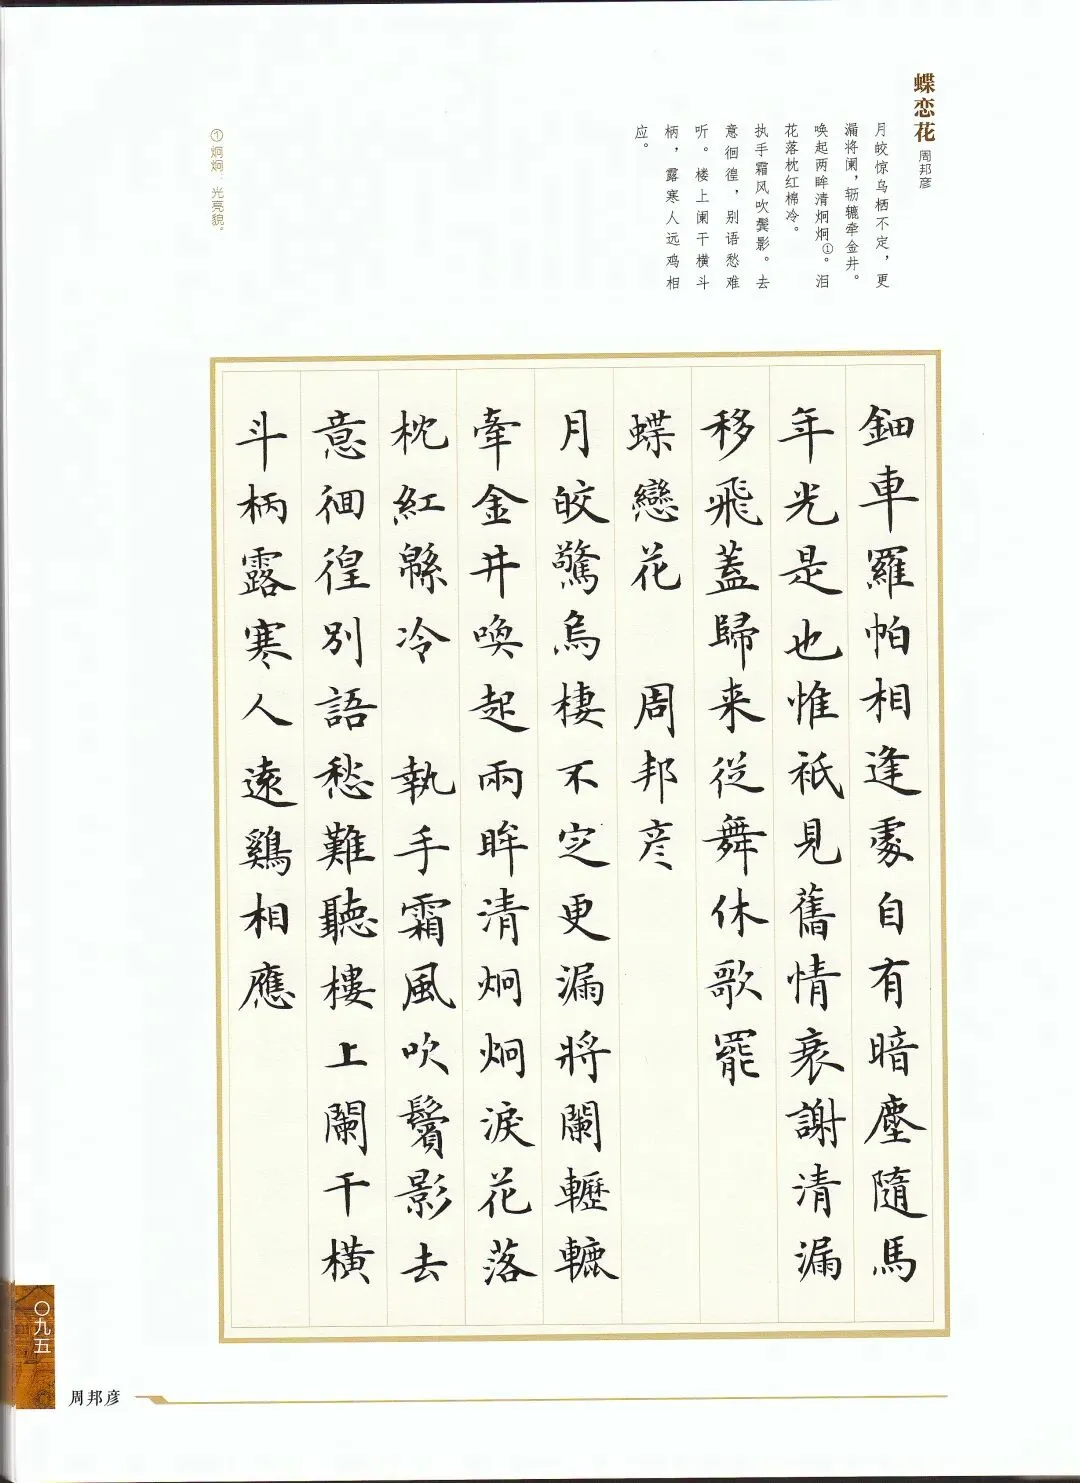 蝶恋花
周邦彦
月皎惊乌栖不定，更
漏将阑，轹辘牵金井。
唤起两眸清炯炯①。泪
花落枕红棉冷。
执手霜风吹鬓影。去
意徊徨，别语愁难
听。楼上阑干横斗
柄，露寒人远鸡相
应。
①炯炯：光亮貌。
鈿車羅帕相逢處自有暗塵隨馬
年光是也惟祇見舊情衰謝清漏
移飛蓋歸来從舞休歌罷
蝶戀花 周邦彦
月皎驚烏棲不定更漏將闌轣轆
牽金井喚起兩眸清炯炯淚花落
枕紅緜冷 執手霜風吹鬢影去
意徊徨別語愁難聽樓上闌干橫
斗柄露寒人遠鷄相應
〇九五
周邦彦